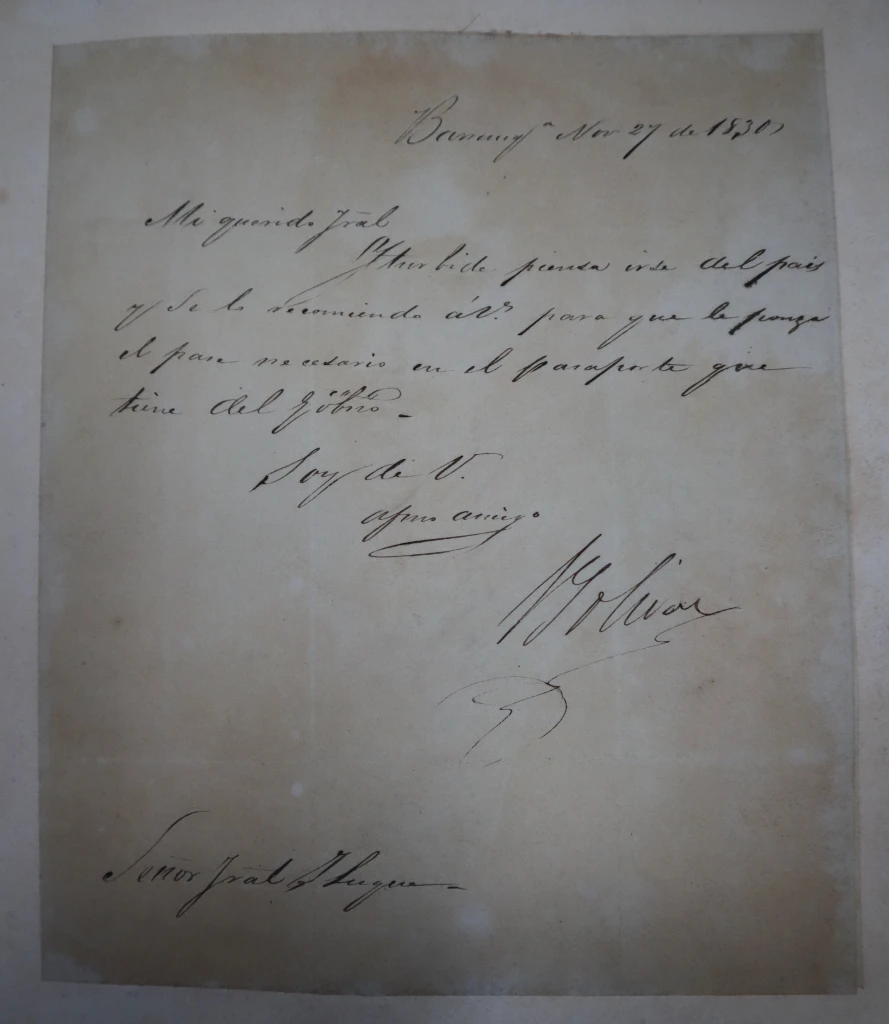 Barranqª Nov 27 de 1830,
Mi querido Jral
Yturbide piensa irse del pais
y se lo recomiendo á Vᵈ para que le ponga
el pase necesario en el pasaporte que
tiene del gobno.
Soy de V.
afmo amigo
Bolivar
Señor Jral Y Luque